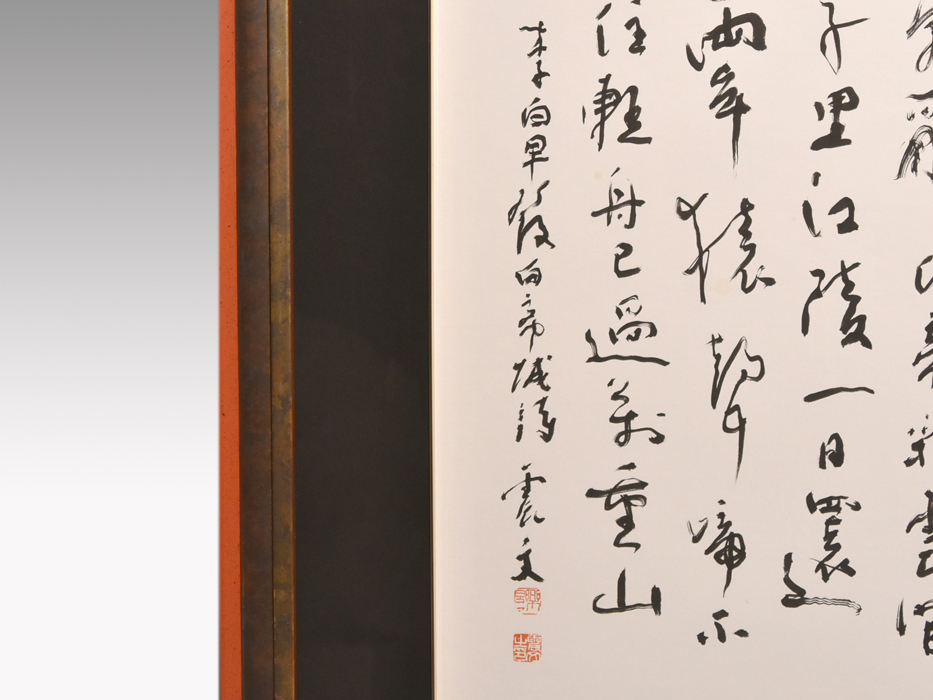 辭白帝彩雲間
千里江陵一日還
兩岸猿聲啼不
住輕舟已過萬重山
李白早發白帝城詩 震文